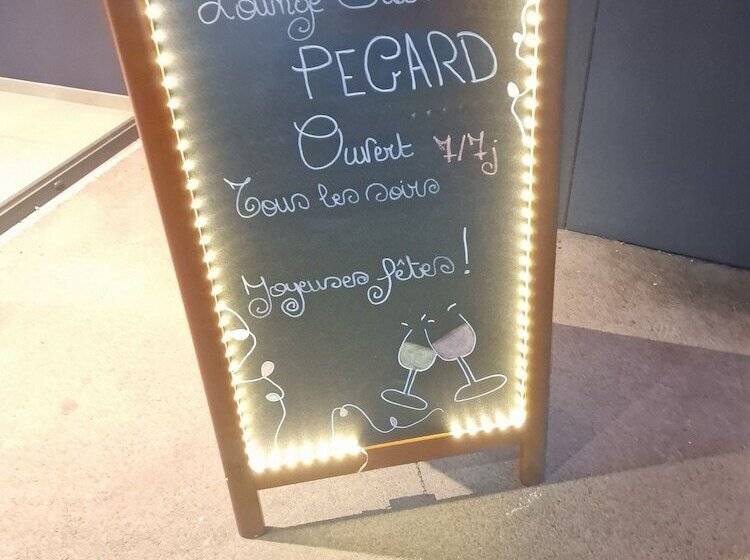 Lounge
PEGARD
Ouvert 7/7j
Tous les soirs
Joyeuses fêtes !